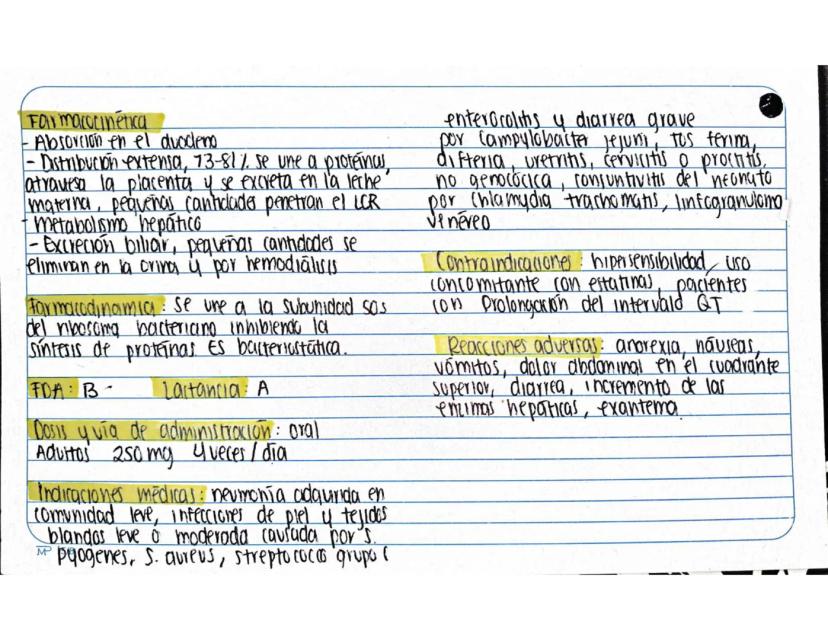 Farmacocinética
- Absorción en el duodeno
- Distribución extensa, 73-81% se une a proteínas,
atraviesa la placenta y se excreta en la leche
materna, pequeñas cantidades penetran el LCR
- Metabolismo hepático
- Excreción biliar, pequeñas cantidades se
eliminan en la orina y por hemodiálisis
Farmacodinamia: Se une a la subunidad 50s
del ribosoma bacteriano inhibiendo la
síntesis de proteínas. Es bacteriostática.
FDA: B - Lactancia: A
Dosis y vía de administración: oral
Adultos 250 mg 4 veces / día
Indicaciones médicas: neumonía adquirida en
comunidad leve, infecciones de piel y tejidos
blandos leve o moderada causada por S.
pyogenes, S. aureus, streptococos grupo C
enterocolitis y diarrea grave
por Campylobacter jejuni, tos ferina,
difteria, uretritis, cervicitis o proctitis
no genocócica, conjuntivitis del neonato
por Chlamydia trachomatis, linfogranuloma
venéreo
Contraindicaciones: hipersensibilidad, uso
concomitante con estatinas, pacientes
con Prolongación del intervalo QT
Reacciones adversas: anorexia, náuseas,
vómitos, dolor abdominal en el cuadrante
superior, diarrea, incremento de las
enzimas hepáticas, exantema